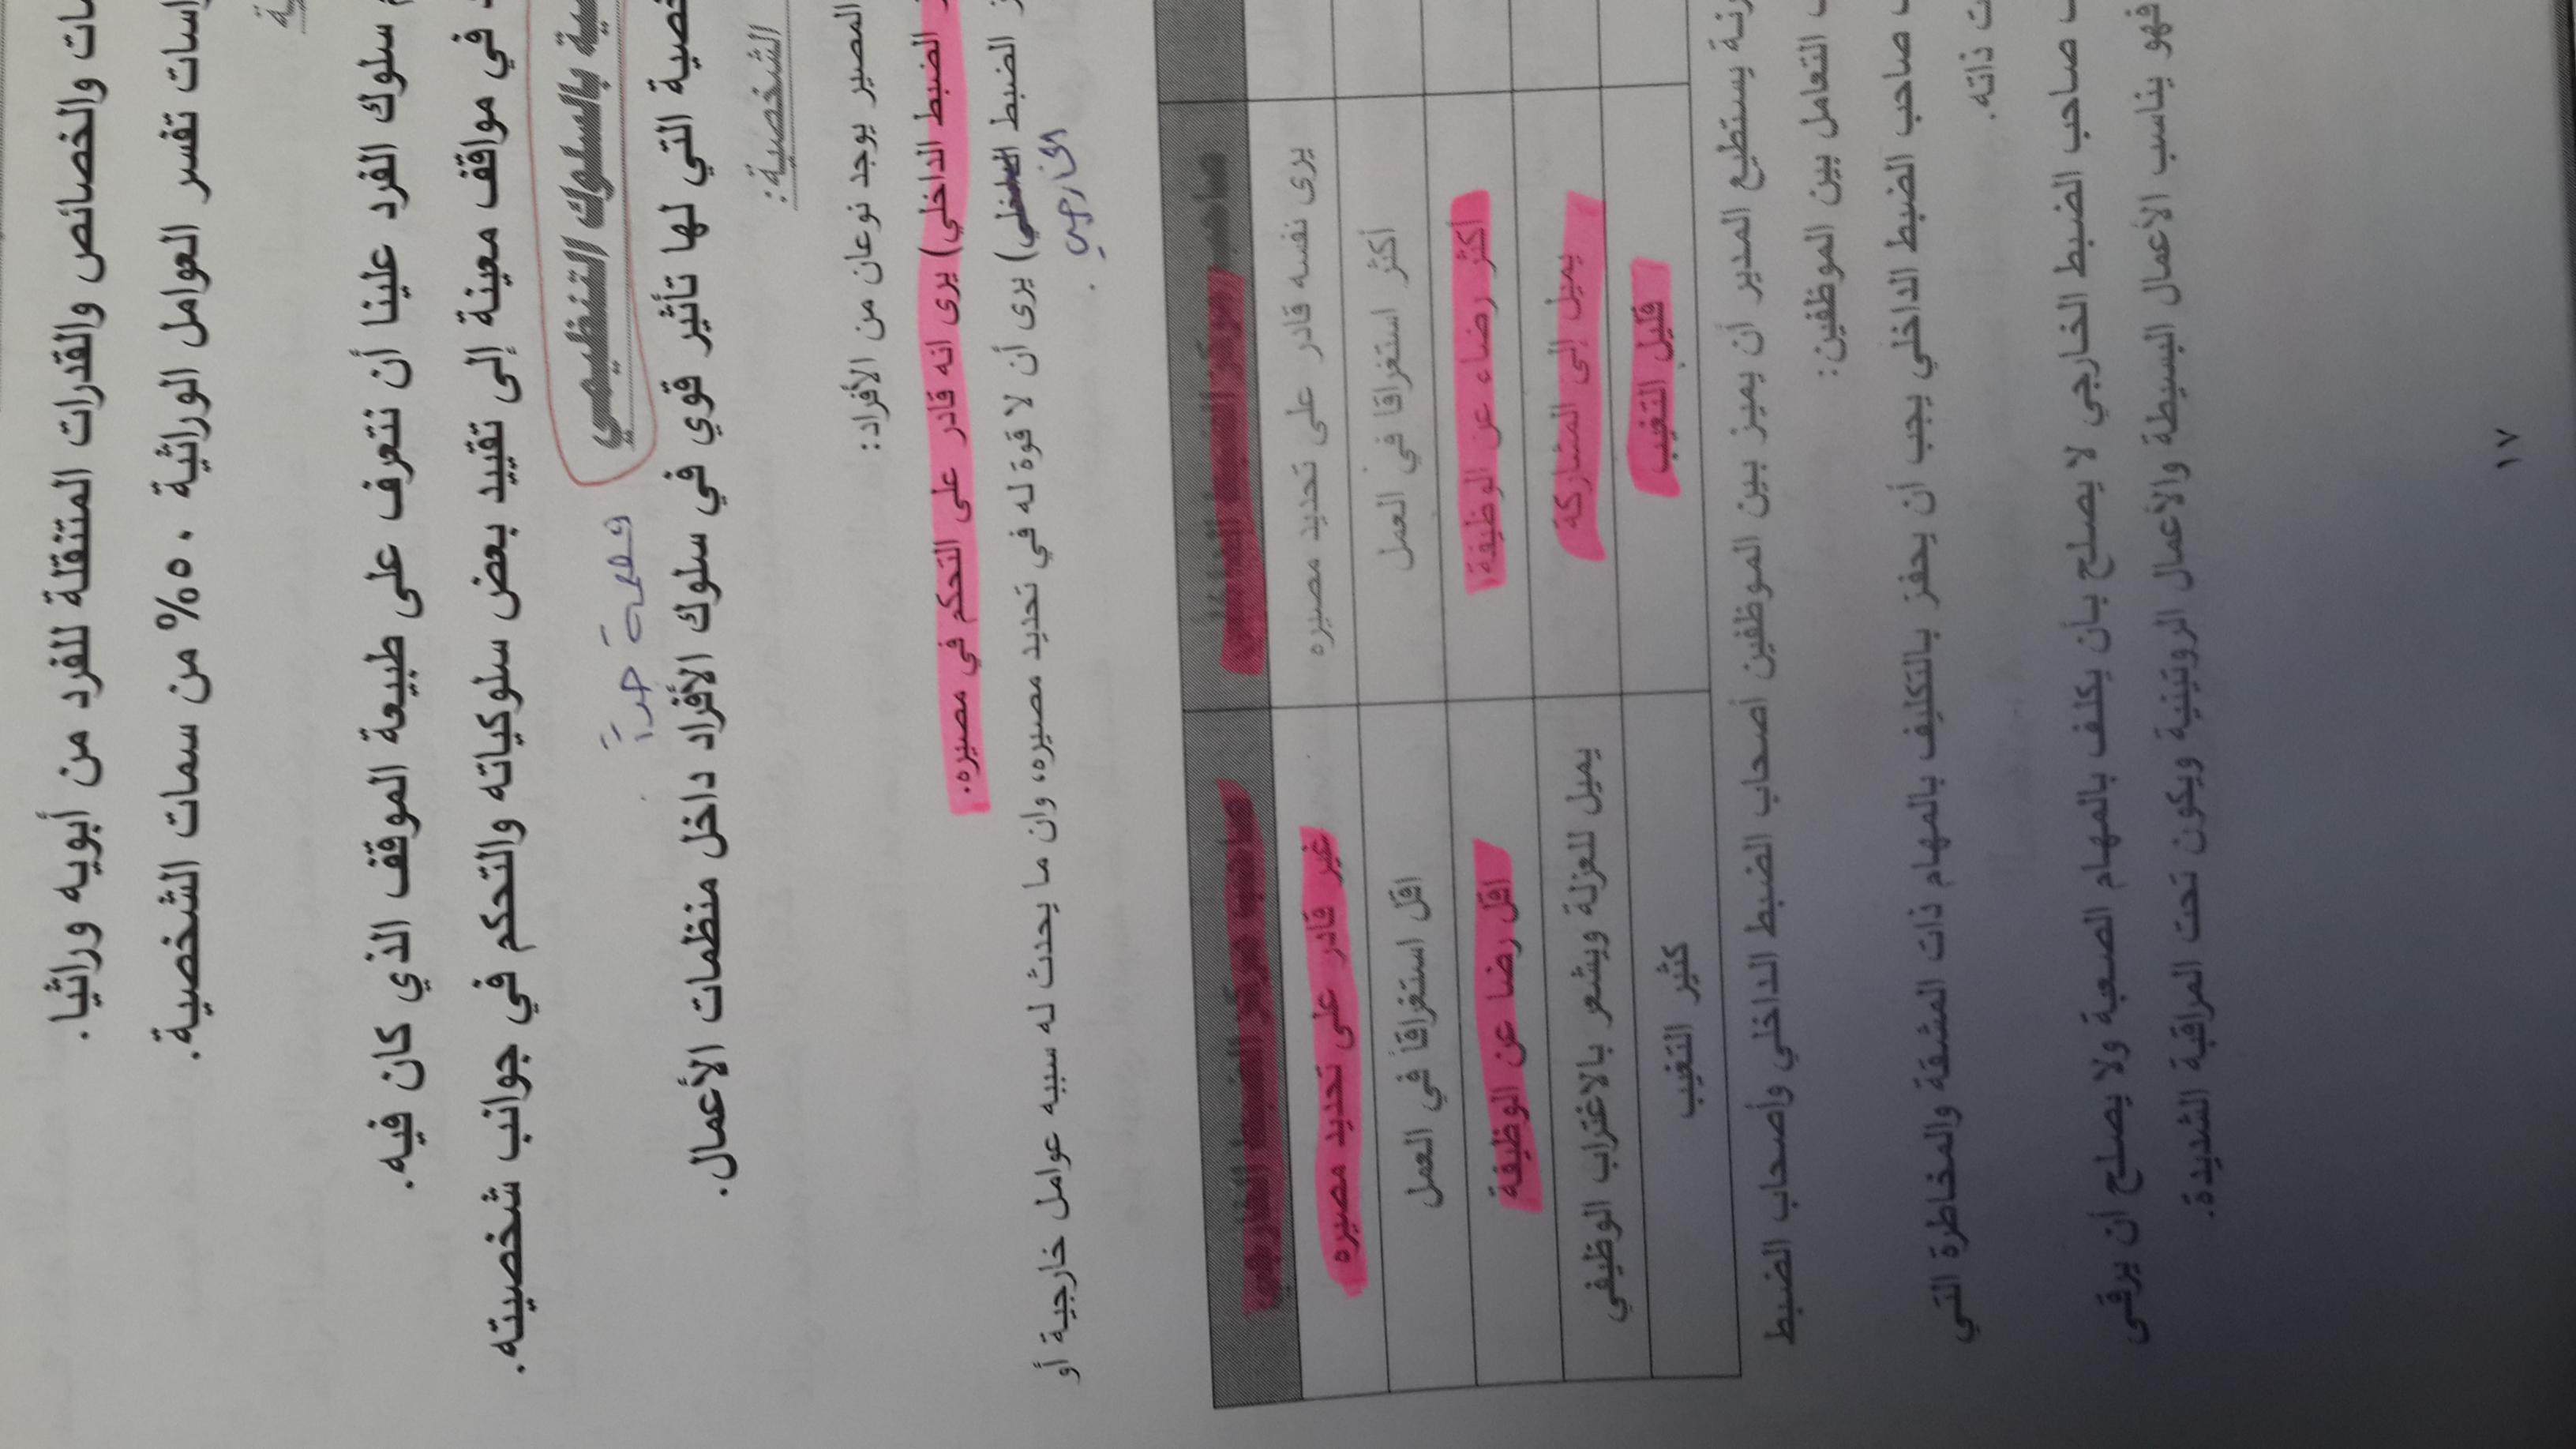 ـات والخصائص والقدرات المتنقلة للفرد من أبويه وراثيا.
ـاسات تفسر العوامل الوراثية ٥٠% من سمات الشخصية.
ـية
ـم سلوك الفرد علينا أن نتعرف على طبيعة الموقف الذي كان فيه.
ـد في مواقف معينة إلى تقييد بعض سلوكياته والتحكم في جوانب شخصيته.
ـية بالسلوك التنظيمي
جداً
ـخصية التي لها تأثير قوي في سلوك الأفراد داخل منظمات الأعمال.
الشخصية:
المصير يوجد نوعان من الأفراد:
ـز الضبط الداخلي) يرى انه قادر على التحكم في مصيره.
ـز الضبط الداخلي) يرى أن لا قوة له في تحديد مصيره، وان ما يحدث له سببه عوامل خارجية أو
الخارجي
صاحب مركز الضبط الداخلي صاحب مركز الضبط الخارجي
يرى نفسه قادر على تحديد مصيره غير قادر على تحديد مصيره
أكثر استغراقا في العمل اقل استغراقاً في العمل
اكثر رضاء عن الوظيفة اقل رضا عن الوظيفة
يميل إلى المشاركة يميل للعزلة ويشعر بالاغتراب الوظيفي
قليل التغيب كثير التغيب
ـرنة يستطيع المدير أن يميز بين الموظفين أصحاب الضبط الداخلي وأصحاب الضبط
ـب التعامل بين الموظفين:
ـب صاحب الضبط الداخلي يجب أن يحفز بالتكليف بالمهام ذات المشقة والمخاطرة التي
ـت ذاته.
ـب صاحب الضبط الخارجي لا يصلح بأن يكلف بالمهام الصعبة ولا يصلح أن يرقى
فهو يناسب الأعمال البسيطة والأعمال الروتينية ويكون تحت المراقبة الشديدة.
١٧